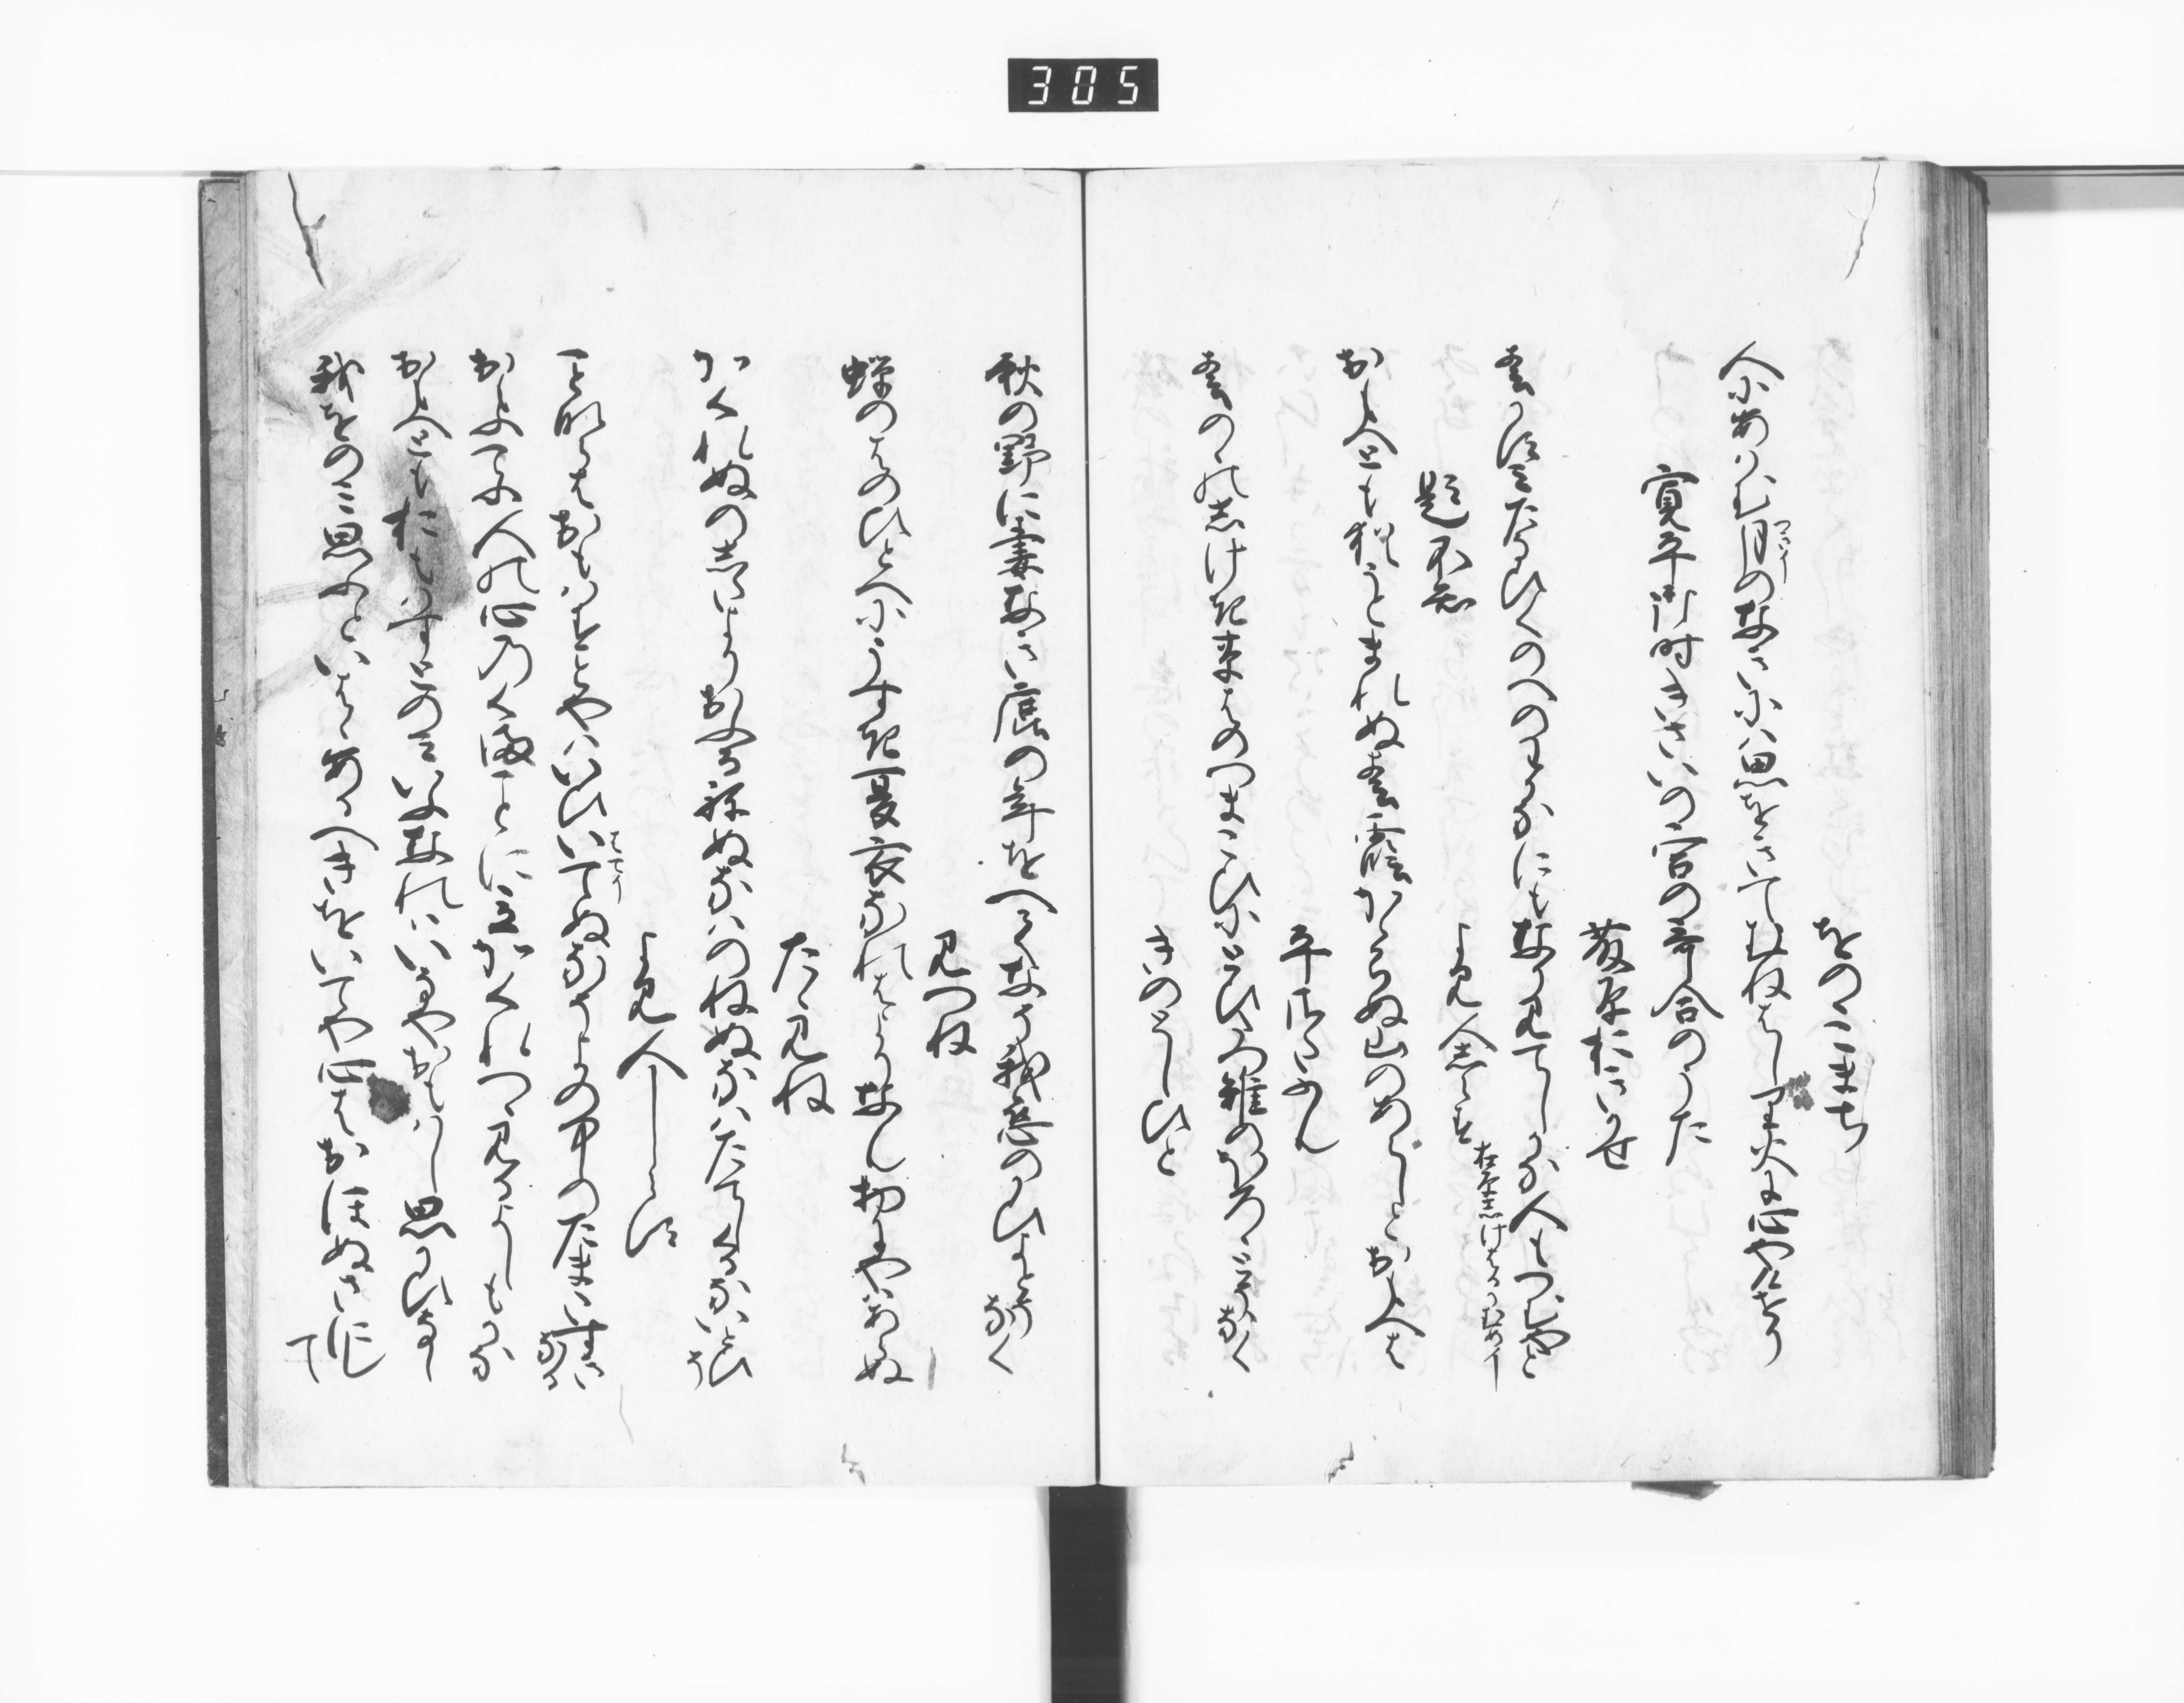 305
をのゝこまち
人にあはむ月のなきには思をきてむねはしり火に心やけをり
寛平御時きさいの宮の哥合のうた
藤原おきかせ
春霞たなひくのへのわかなにもなり見てしかな人もつむやと
題不知
よみ人しらす
おもへとも猶うとまれぬ春霞かゝらぬ山のあらしとおもへは
平貞文
春のゝのしけき草はのつまこひにとひたつ雉のほろゝとそなく
きのよしひと
秋の野に妻なき鹿の年をへてなそ我恋のかひよとそなく
みつね
蝉のはのひとへにうすき夏衣なれはよりなん物にやはあらぬ
たゝみね
かくれぬの下よりおふるねぬなはのねぬなはたてしくるないとひそ
よみ人しらす
ことならはおもはすとやはいひはてぬなそよの中のたまたすきなる
おもふてふ人の心のくまことに立かくれつゝみるよしもかな
おもへともおもはすとのみいふなれはいなやおもはし思ふかひなし
我をのみ思ふといはゝあるへきをいてや心はおほぬさにして